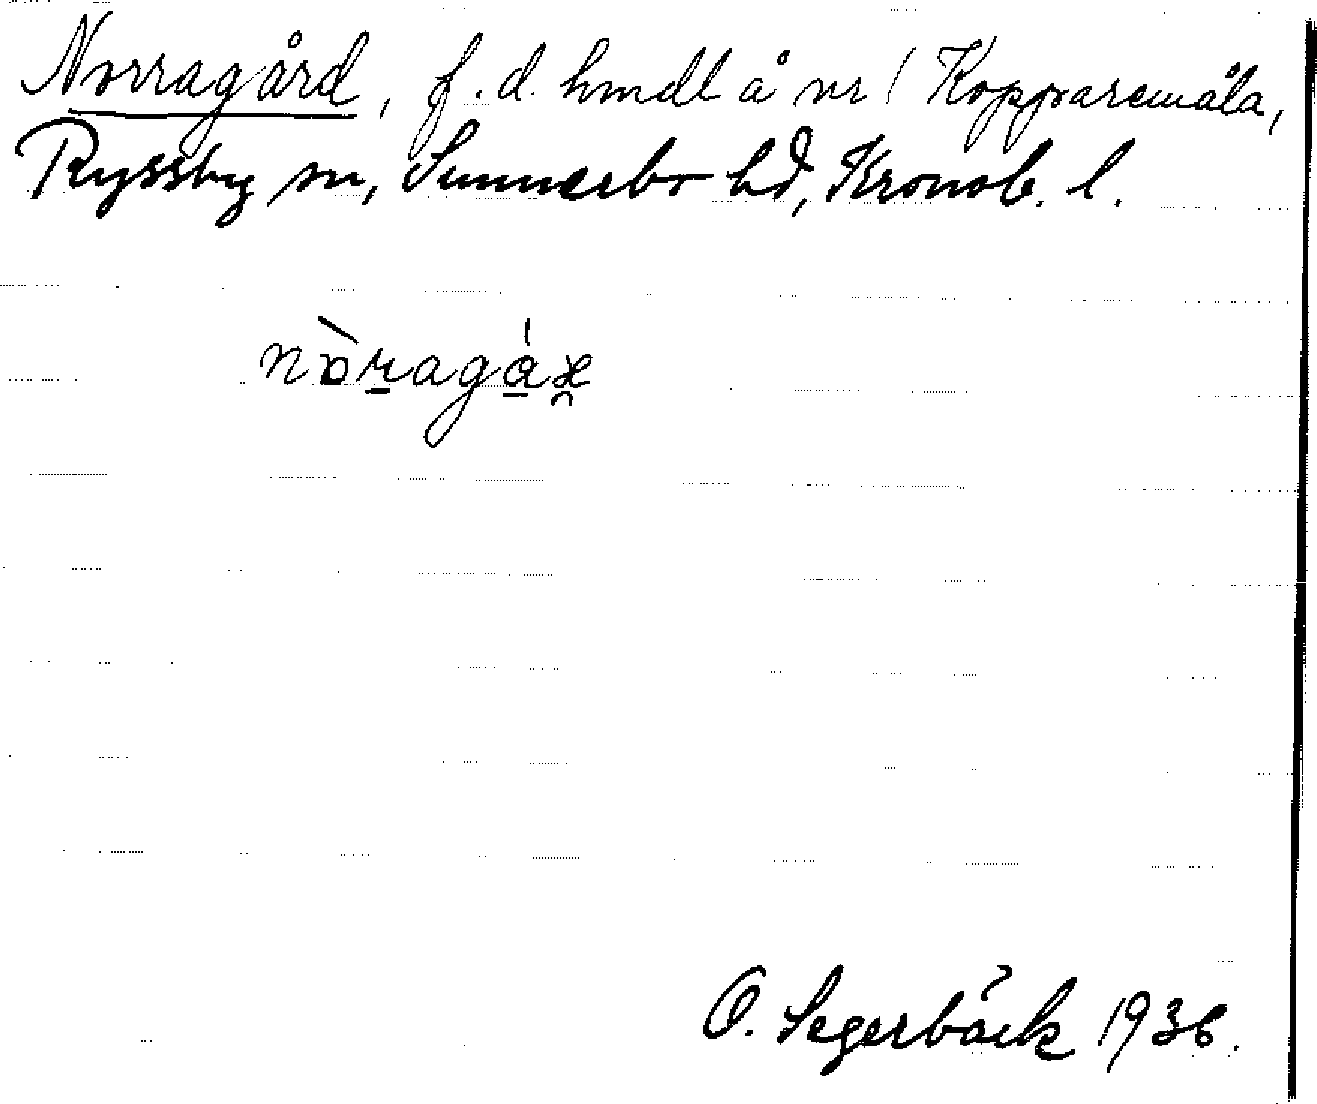 Norragård, f.d. hmdl å nr 1 Kopparemåla,
Ryssby sn, Sunnerbo hd, Kronob. l.
nòragá
O. Segerbäck 1936.